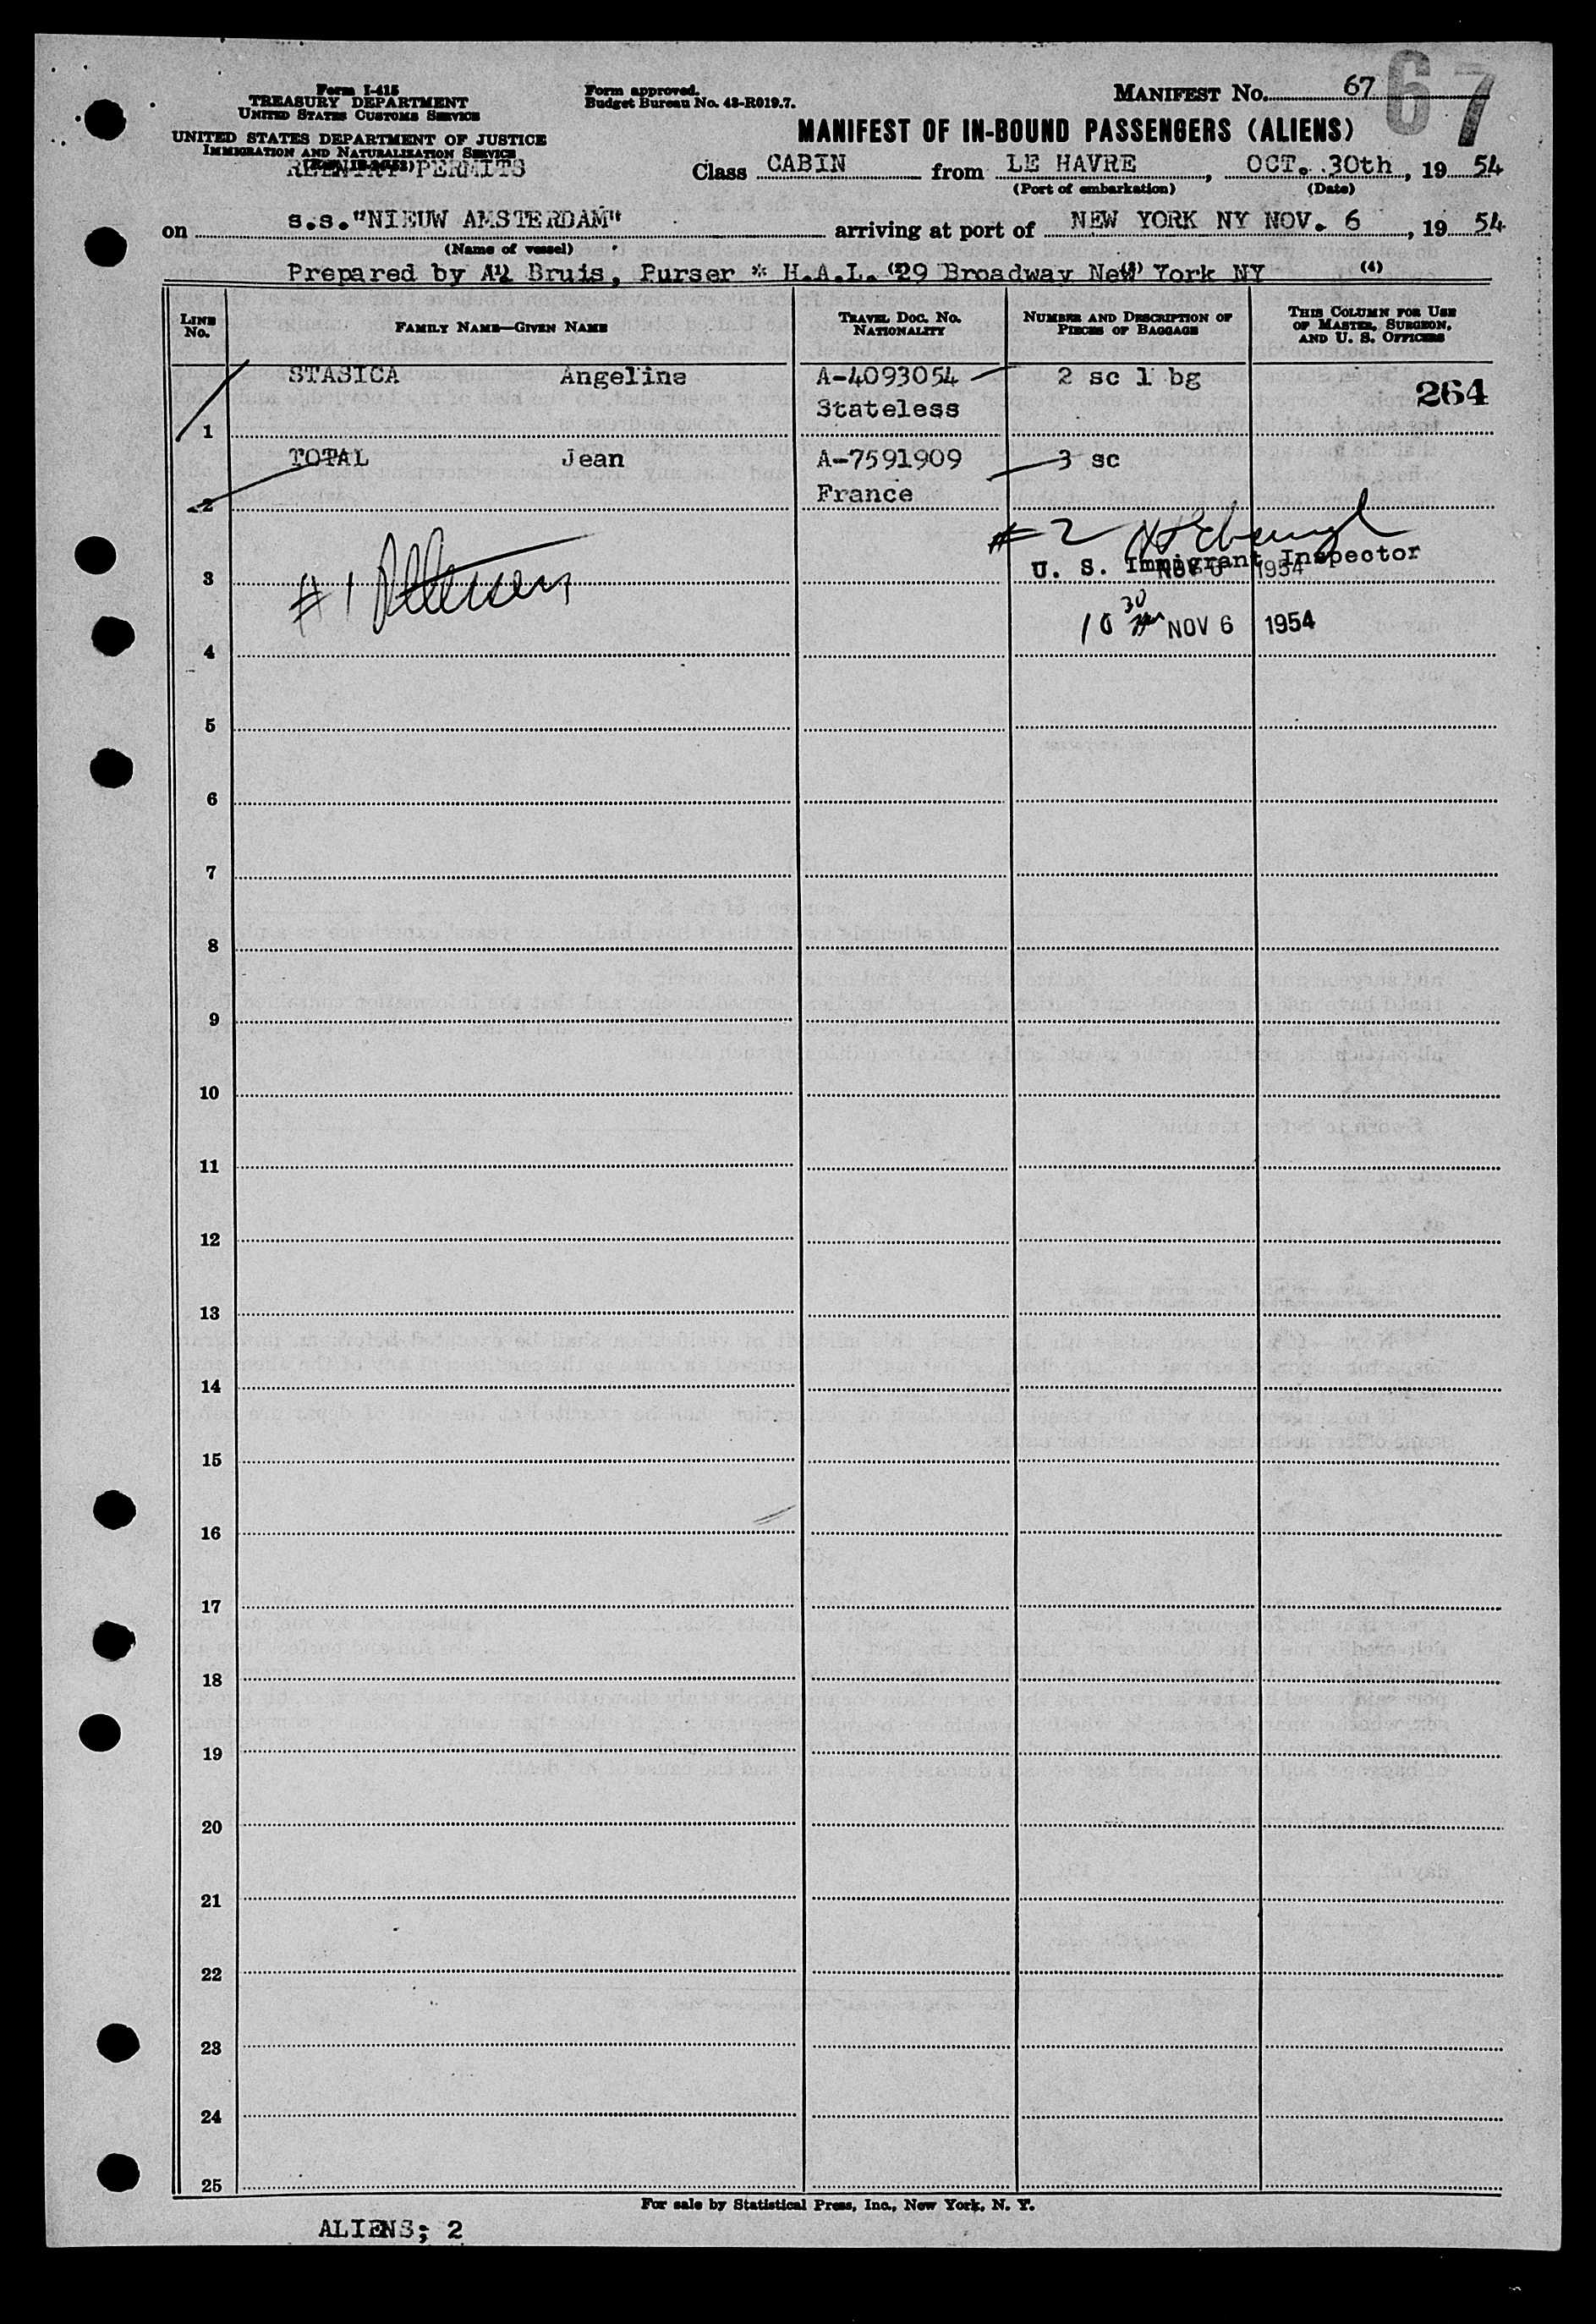 Form I-415
TREASURY DEPARTMENT
UNITED STATES CUSTOMS SERVICE
UNITED STATES DEPARTMENT OF JUSTICE
IMMIGRATION AND NATURALIZATION SERVICE
REENTRY PERMITS
Form approved.
Budget Bureau No. 43-R019.7.
MANIFEST No. 67
67
MANIFEST OF IN-BOUND PASSENGERS (ALIENS)
Class CABIN from LE HAVRE, OCT. 30th, 19 54
(Port of embarkation) (Date)
on s.s."NIEUW AMSTERDAM" arriving at port of NEW YORK NY NOV. 6, 19 54
(Name of vessel)
Prepared by Bruis, Purser * H.A.L. 29 Broadway New York NY (4)
LINE No.
FAMILY NAME—GIVEN NAME
TRAVEL DOC. NO. NATIONALITY
NUMBER AND DESCRIPTION OF PIECES OF BAGGAGE
THIS COLUMN FOR USE OF MASTER, SURGEON, AND U. S. OFFICERS
STASICA Angelina A-4093054 2 sc 1 bg 264
1 Stateless
TOTAL Jean A-7591909 3 sc
2 France
#2
#1
3 U. S. Immigrant Inspector
NOV 6 1954
10 30 AM NOV 6 1954
4
5
6
7
8
9
10
11
12
13
14
15
16
17
18
19
20
21
22
23
24
25
For sale by Statistical Press, Inc., New York, N. Y.
ALIENS; 2